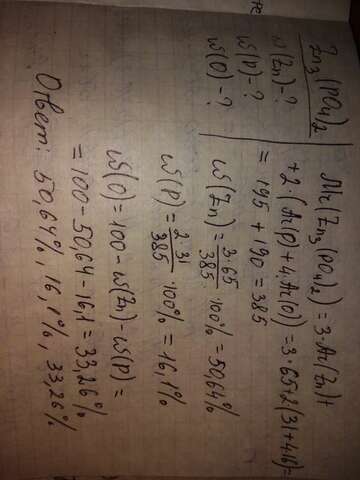 Zn₃(PO₄)₂
ω(Zn)-?
ω(P)-?
ω(O)-?
Mr(Zn₃(PO₄)₂) = 3·Ar(Zn)+
+2·(Ar(P)+4·Ar(O))=3·65+2(31+4·16)=
= 195 + 190 = 385
ω(Zn) = 3·65/385 · 100% = 50,64%
ω(P) = 2·31/385 · 100% = 16,1%
ω(O) = 100 - ω(Zn) - ω(P) =
= 100 - 50,64 - 16,1 = 33,26%
Ответ: 50,64%, 16,1%, 33,26%